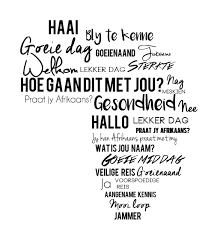 HAAI
Bly te kenne
Goeie dag
GOEIENAAND
Totsiens
Welkom
LEKKER DAG
STERKTE
HOE GAAN DIT MET JOU?
Nag
MESKIEN
Praat jy Afrikaans?
Gesondheid
Nee
HALLO
LEKKER DAG
PRAAT JY AFRIKAANS?
Jy kan Afrikaans praat met my
WAT IS JOU NAAM?
GOEIE MIDDAG
VEILIGE REIS
Goeienaand
Ja
VOORSPOEDIGE REIS
AANGENAME KENNIS
Mooi loop
JAMMER